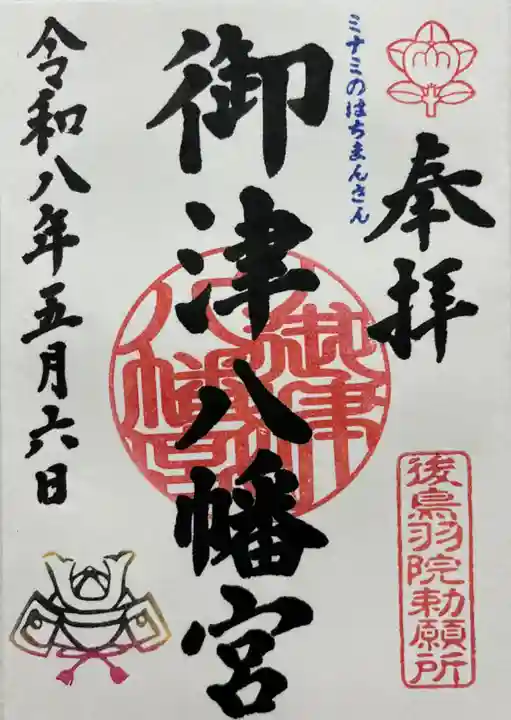 奉拝
後鳥羽院勅願所
ミナミのはちまんさん
御津八幡宮
御津八幡宮
令和八年五月六日